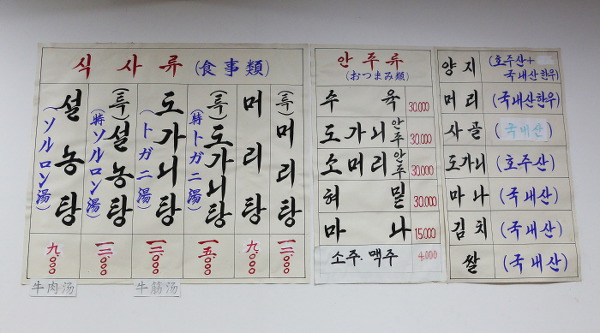 식사류 (食事類)
설농탕
(ソルロン湯)
九,000
牛肉汤
(특)설농탕
(特ソルロン湯)
一二,000
도가니탕
(トガニ湯)
一二,000
牛筋汤
(특)도가니탕
(特トガニ湯)
一五,000
머리탕
九,000
(특)머리탕
一二,000
안주류
(おつまみ類)
수육 30,000
도가니안주 30,000
소머리안주 30,000
혀밑 30,000
마나 15,000
소주.맥주 4,000
양지 (호주산+
국내산한우)
머리 (국내산한우)
사골 (국내산)
도가니 (호주산)
마나 (국내산)
김치 (국내산)
쌀 (국내산)